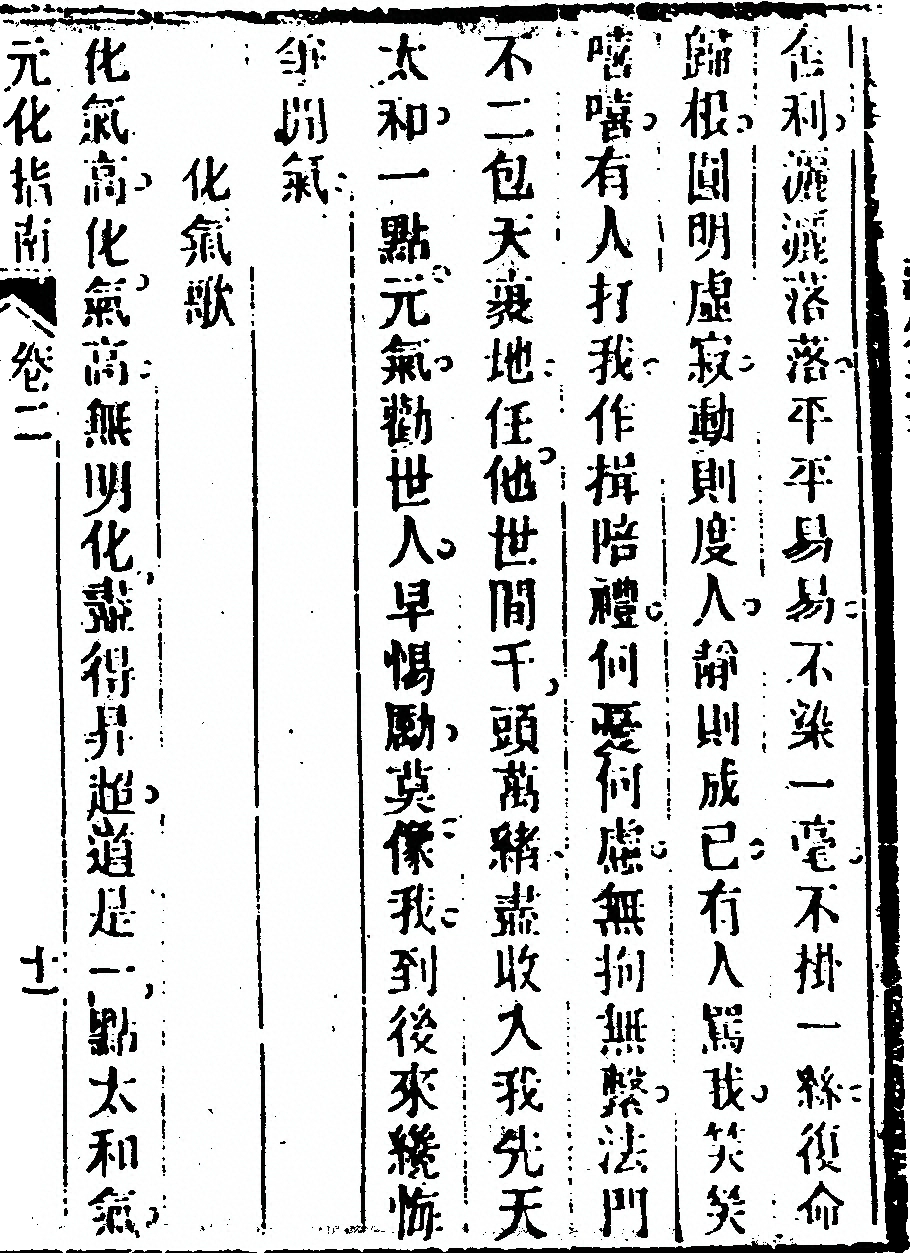 利灑灑落落平平易易不染一毫不掛一絲復命
歸根圓明虛寂動則度人靜則成已有人罵我笑笑
嘻嘻有人打我作揖陪禮何憂何慮無拘無繫法門
不二包天裹地任他世間千頭萬緒盡收入我先天
太和一點元氣勸世人早惕勵莫像我到後來纔悔
開氣
化氣歌
化氣高化氣高無明化盡得昇超道是一點太和氣
元化指南 卷二 十一